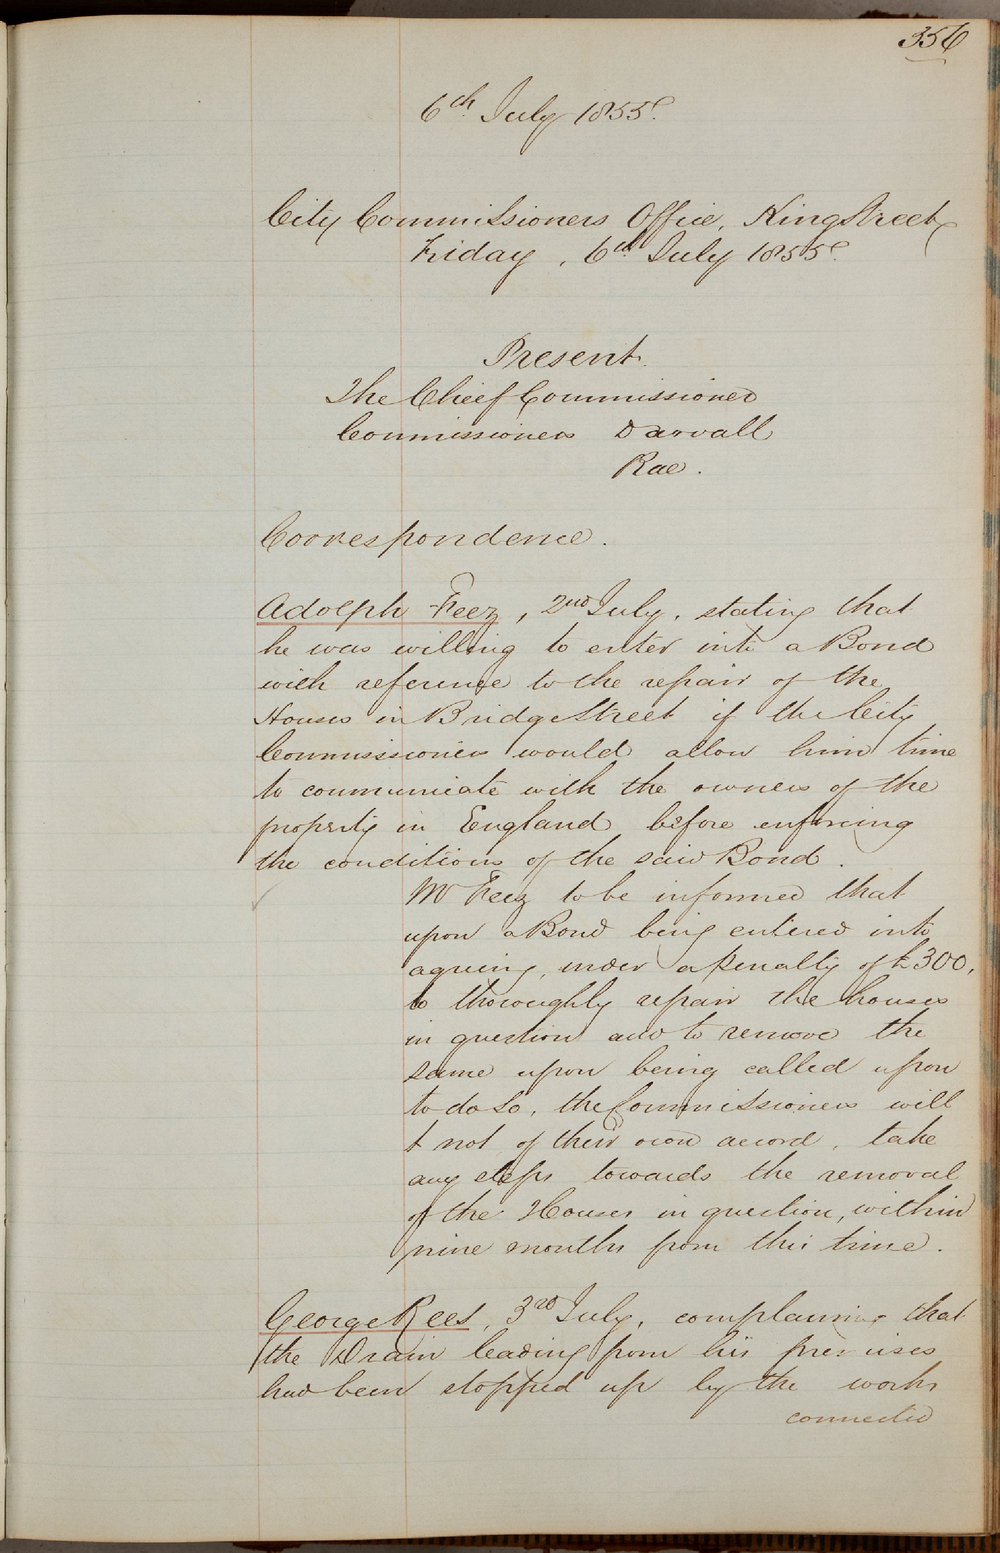 356
6th July 1855.
City Commissioners Office, King Street,
Friday, 6th July 1855.
Present.
The Chief Commissioner
Commissioners Darvall
Rae.
Correspondence.
Adolph Feez, 2nd July, stating that
he was willing to enter into a Bond
with reference to the repair of the
Houses in Bridge Street if the City
Commissioners would allow him time
to communicate with the owners of the
property in England before enforcing
the conditions of the said Bond.
Mr Feez to be informed that
upon a Bond being entered into
agreeing, under a penalty of £300,
to thoroughly repair the houses
in question and to remove the
same upon being called upon
to do so, the Commissioners will
not of their own accord, take
any steps towards the removal
of the Houses in question, within
nine months from this time.
George Rees, 3rd July, complaining that
the Drain leading from his premises
had been stopped up by the works
connected